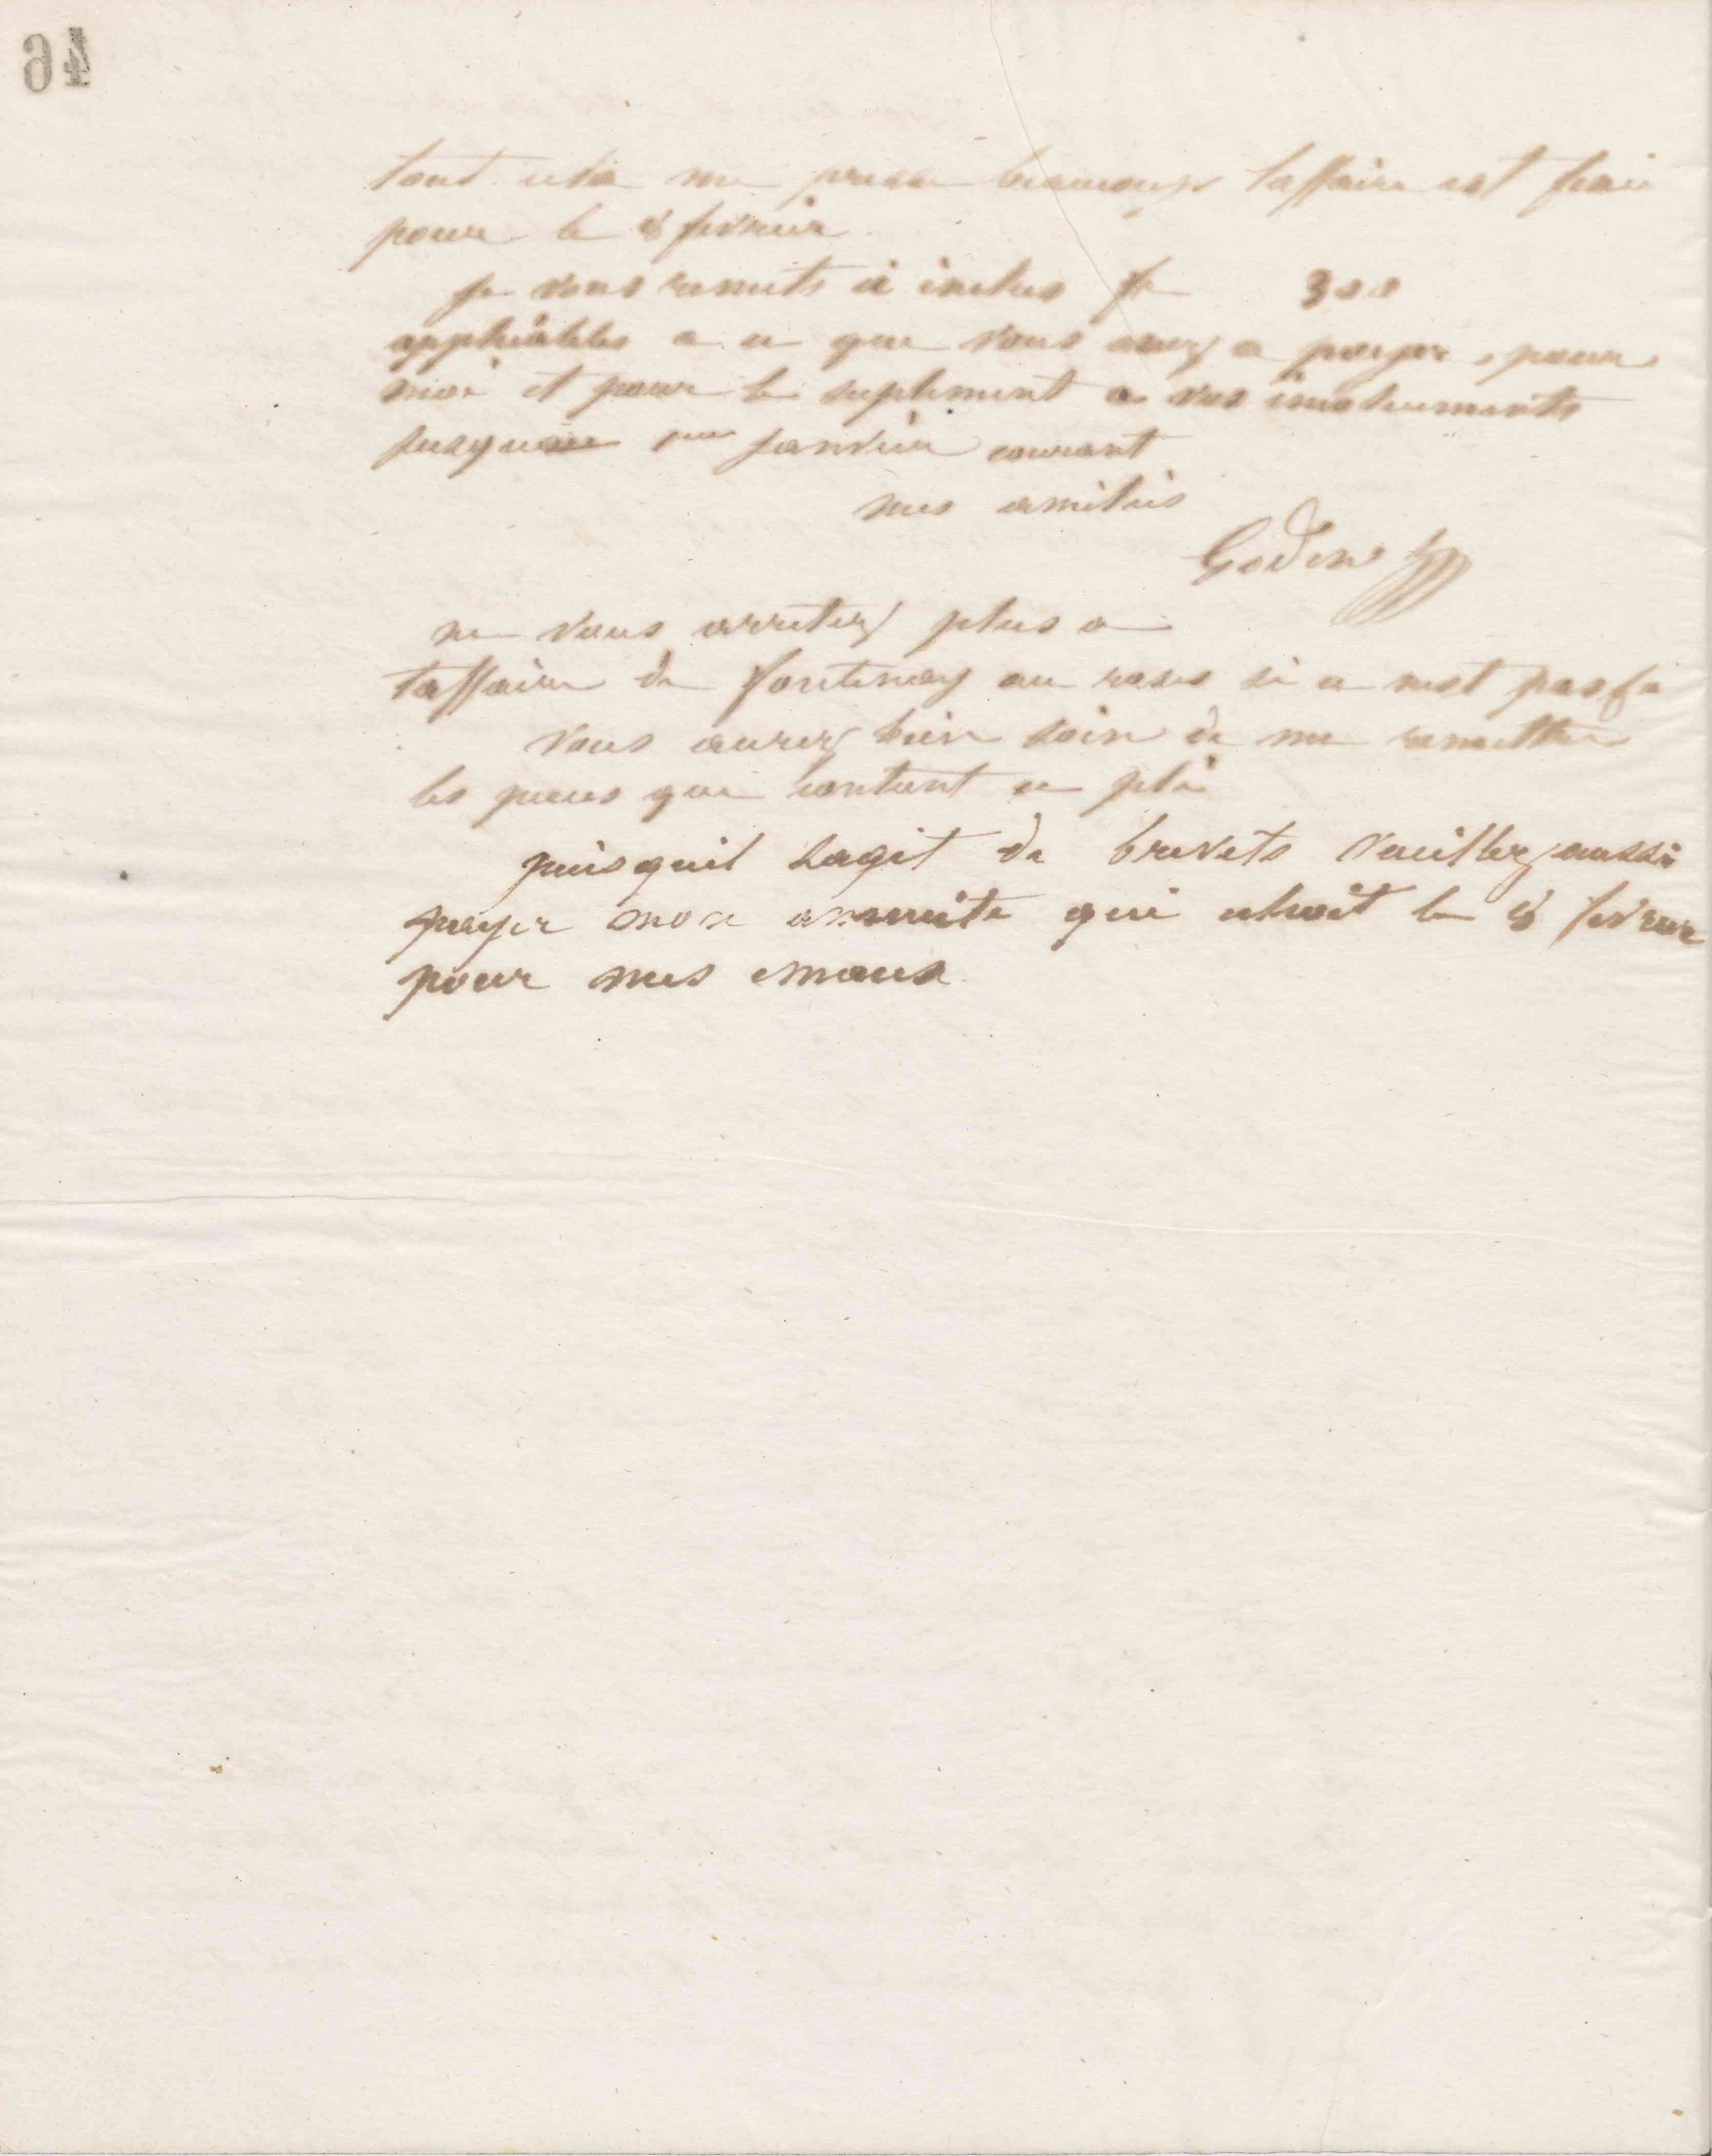 46
tout cela me presse beaucoup l'affaire est fixée
pour le 8 fevrier
je vous remets ci inclus f 300
applicables a ce que vous avez a payer pour
moi et pour le suplement a vos instruments
jusquau 1er janvier courant
mes amitiés
Godin
ne vous arretez plus a
laffaire de fontenay au roses si ce nest pas
vous aurez bien soin de me remettre
les pieces que contient ce pli
puisquil sagit de brevets veuillez aussi
payer mon annuite qui echoit le 8 fevrier
pour mes emaux